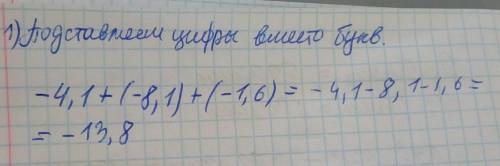 1) Подставляем цифры вместо букв.
-4,1+(-8,1)+(-1,6)= -4,1-8,1-1,6=
= -13,8